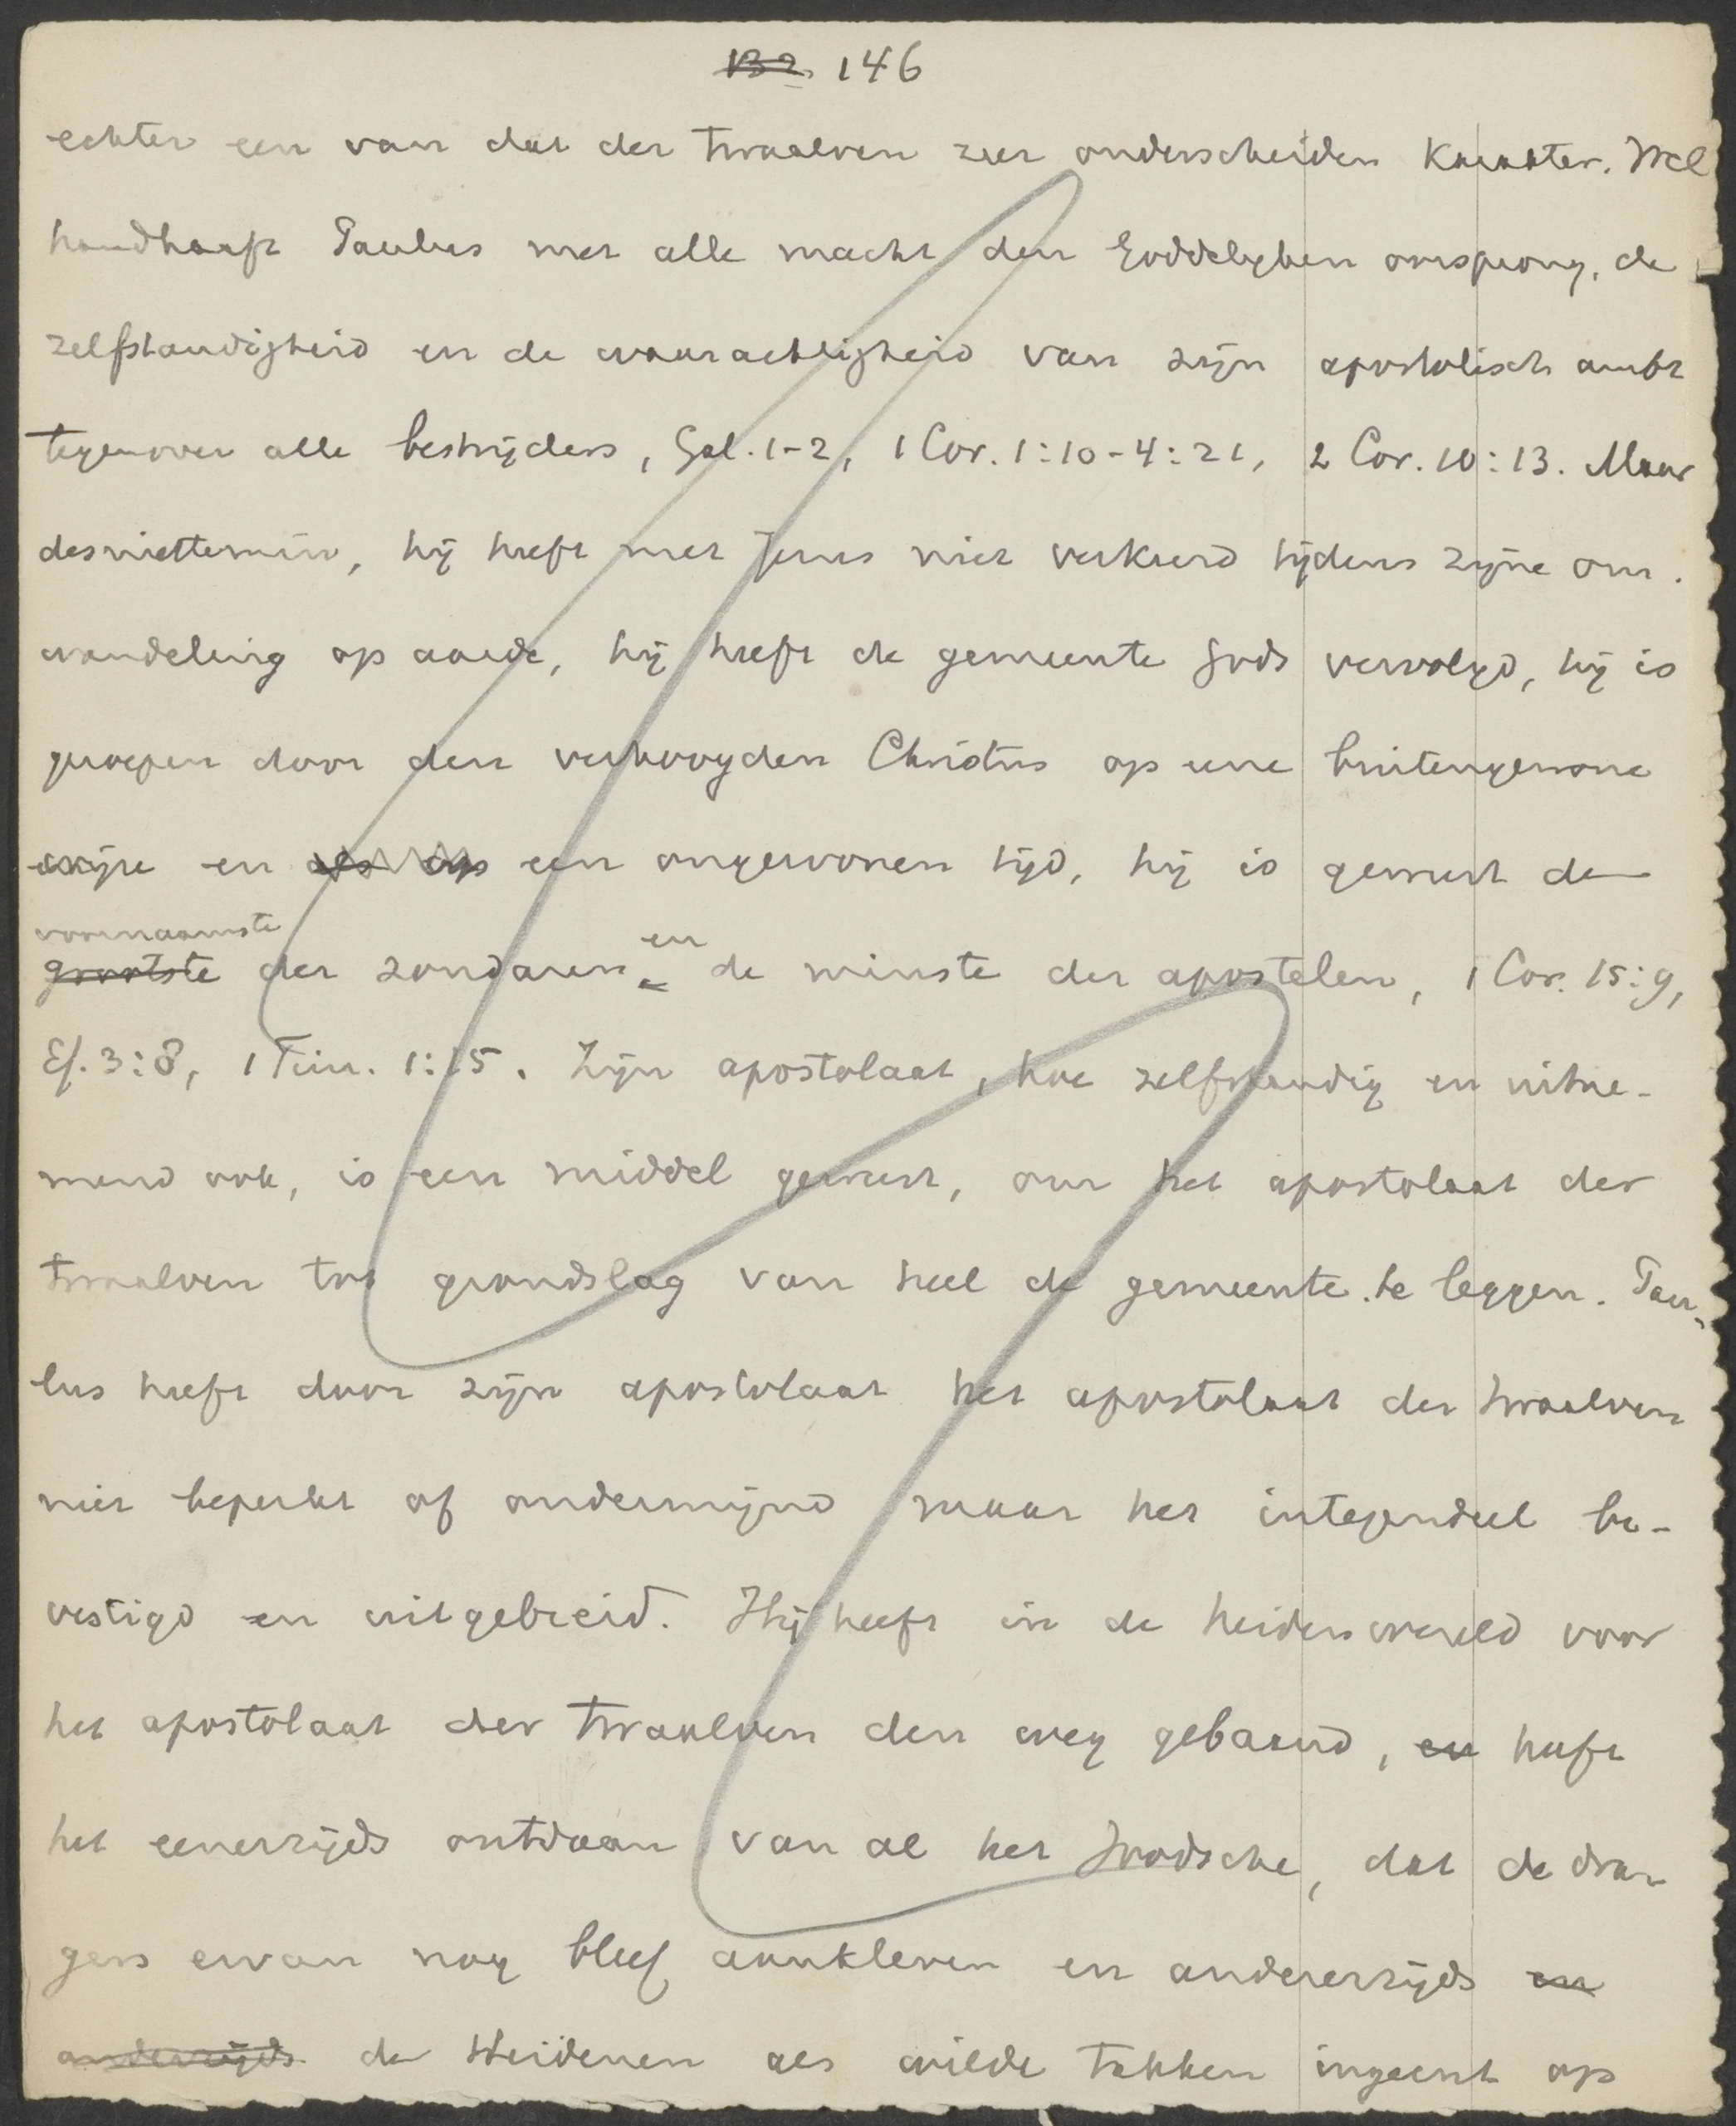 132 146
echter een van dat der twaalven zeer onderscheiden karakter. Wel
handhaaft Paulus met alle macht den Goddelijken oorsprong, de
zelfstandigheid en de waarachtigheid van zijn apostolisch ambt
tegenover alle bestrijders, Gal. 1-2, 1 Cor. 1:10-4:21, 2 Cor. 10:13. Maar
desniettemin, hij heeft met Jezus niet verkeerd tijdens zijne om-
wandeling op aarde, hij heeft de gemeente Gods vervolgd, hij is
geroepen door den verhoogden Christus op eene buitengewone
wijze en als op een ongewonen tijd, hij is geweest de
voornaamste
grootste der zondaren en de minste der apostelen, 1 Cor. 15:9,
Ef. 3:8, 1 Tim. 1:15. Zijn apostolaat, hoe zelfstandig en uitne-
mend ook, is een middel geweest, om het apostolaat der
twaalven tot grondslag van heel de gemeente te leggen. Pau-
lus heeft door zijn apostolaat het apostolaat der twaalven
niet beperkt of ondermijnd maar het integendeel be-
vestigd en uitgebreid. Hij heeft in de heidenwereld voor
het apostolaat der twaalven den weg gebaand, en heeft
het eenerzijds ontdaan van al het Joodsche, dat de dra-
gers ervan nog bleef aankleven en andererzijds en
anderzijds de Heidenen als wilde takken ingeent op